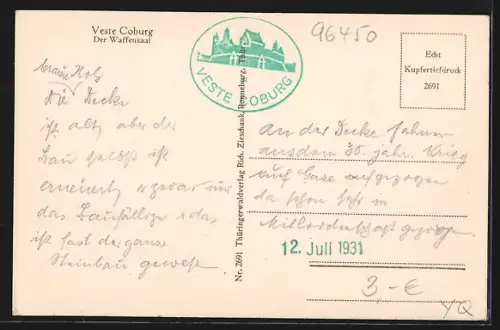 Veste Coburg
Der Waffensaal
braune Holz
Die Decke
ist alt, aber der
Bau selbst ist
erneuert, zwar nur
das Baufällige, das
ist fast der ganze
Steinbau gewesen
VESTE COBURG
Nr. 2691 Thüringerwaldverlag Rich. Zieschank, Ronneburg, Thür.
96450
Echt
Kupfertiefdruck
2691
An der Decke Fahnen
aus dem 30. jähr. Krieg
auf Gaze aufgezogen
da schon sehr in
gezogen
12. Juli 1931
3,- €
YQ